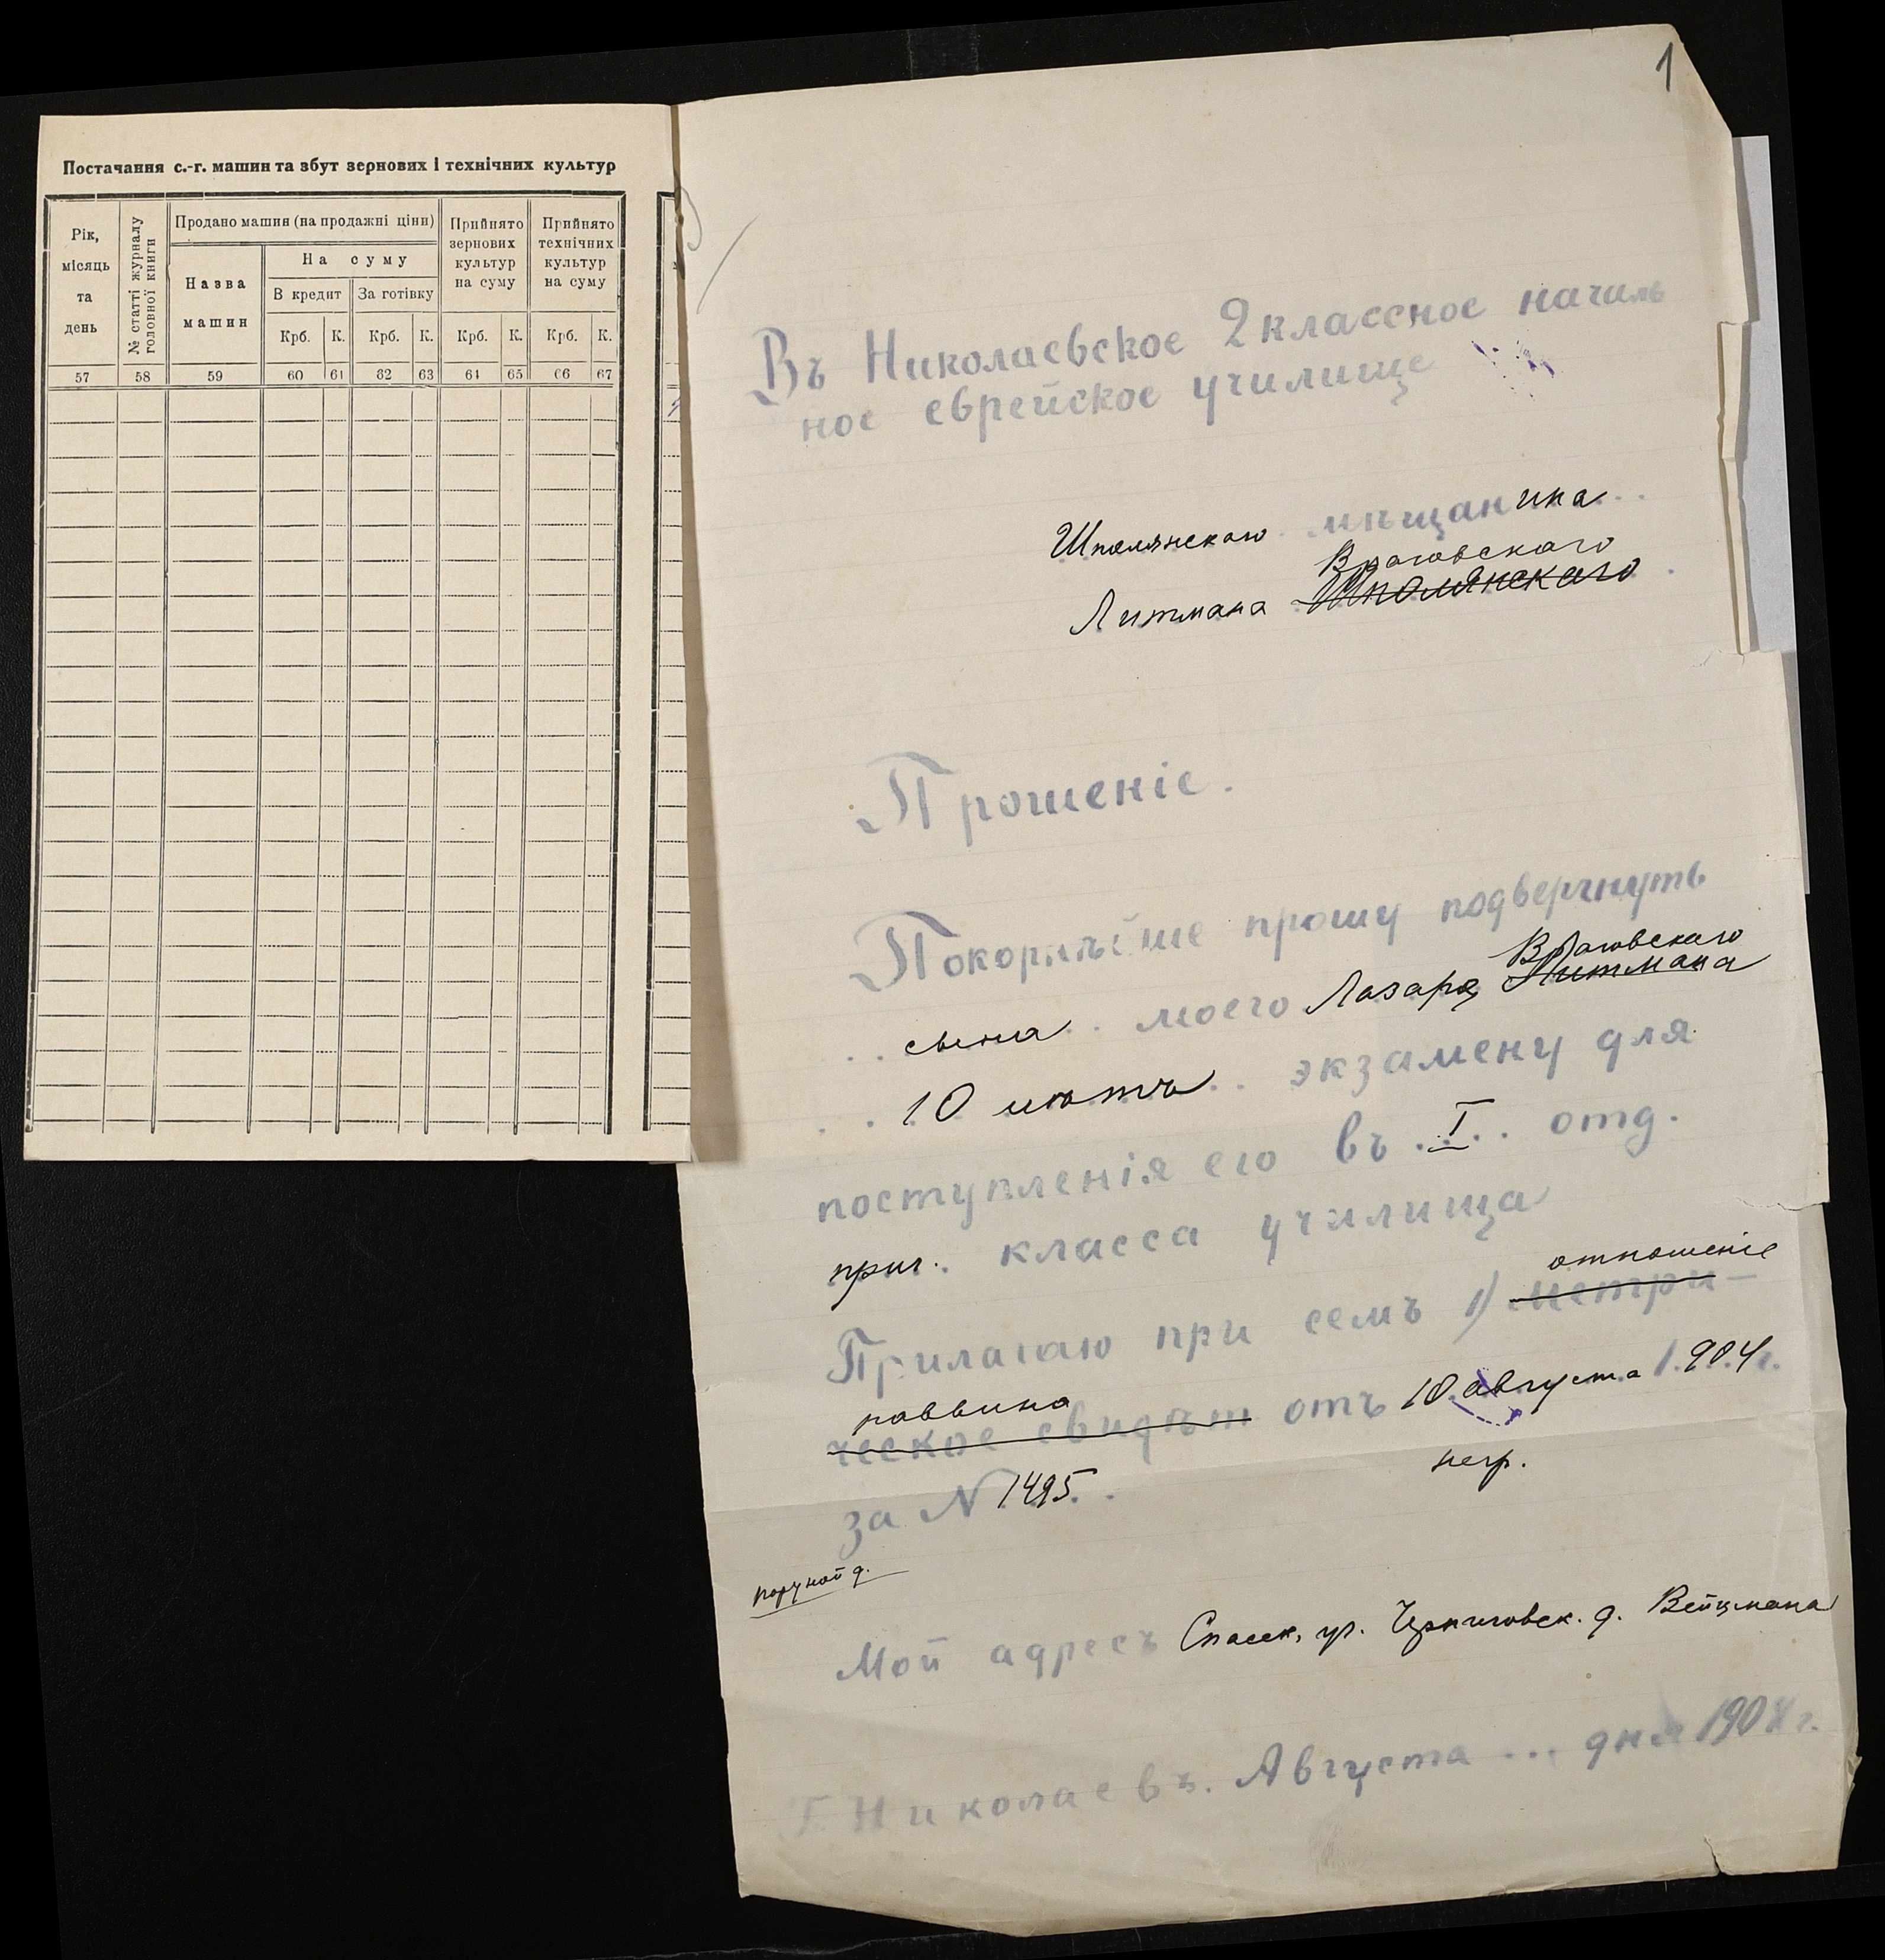 Постачання с.-г. машин та збут зернових і технічних культур
Рік, місяць та день
№ статті журналу головної книги
Продано машин (на продажні ціни)
Назва машин
На суму
В кредит
За готівку
Прийнято зернових культур на суму
Прийнято технічних культур на суму
Крб. К. Крб. К. Крб. К. Крб. К.
57 58 59 60 61 62 63 64 65 66 67
1
Въ Николаевское 2 классное началь
ное еврейское училище
Шполянскаго мѣщанина
Враговскаго
Литмана Шполянскаго
Прошеніе.
Покорнѣйше прошу подвергнуть
Враговскаго
сына моего Лазаря Литмана
10 лѣтъ экзамену для
поступленія его въ I отд.
приг. класса училища
отношеніе
Прилагаю при семъ 1) метри-
раввина
ческое свидѣт отъ 10 августа 1904 г.
за N 1495
Мой адресъ Спасск. ул. Черниговск. д. Вейцмана
Г. Николаевъ. Августа ... дня 1904 г.